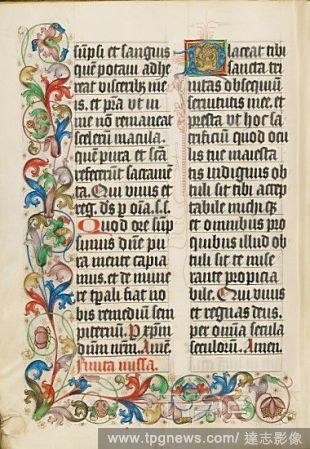 sūpsi et sanguis
quē potaui adhe
reat visceribꝫ me
is. et pr̄a vt in
me nō remaneat
sceleꝝ macula.
quē pura et scā
refecerūt sacramē
ta. Qui viuis et
reg. ds̄ p oīa. s.s.
Quod ore sūp
simus dn̄e pu
ra mente capia
mus. et de mune
re tp̄ali fiat no
bis remediū sem
piternū. P xp̄m
dn̄um nr̄m. Amē.
finita missa.
Placeat tibi
sancta tri
nitas obsequiū
seruitutis mee. et
presta vt hoc sa
crificiū quod ocu
lis tue maiesta
tis indignus ob
tuli sit tibi accep
tabile michi qꝫ
et omnibus pro
quibus illud ob
tuli sit te mise
rante propicia
bile. Qui viuis
et regnas deus.
per omnia secula
seculorum. Amen
www.tpgnews.com/達志影像